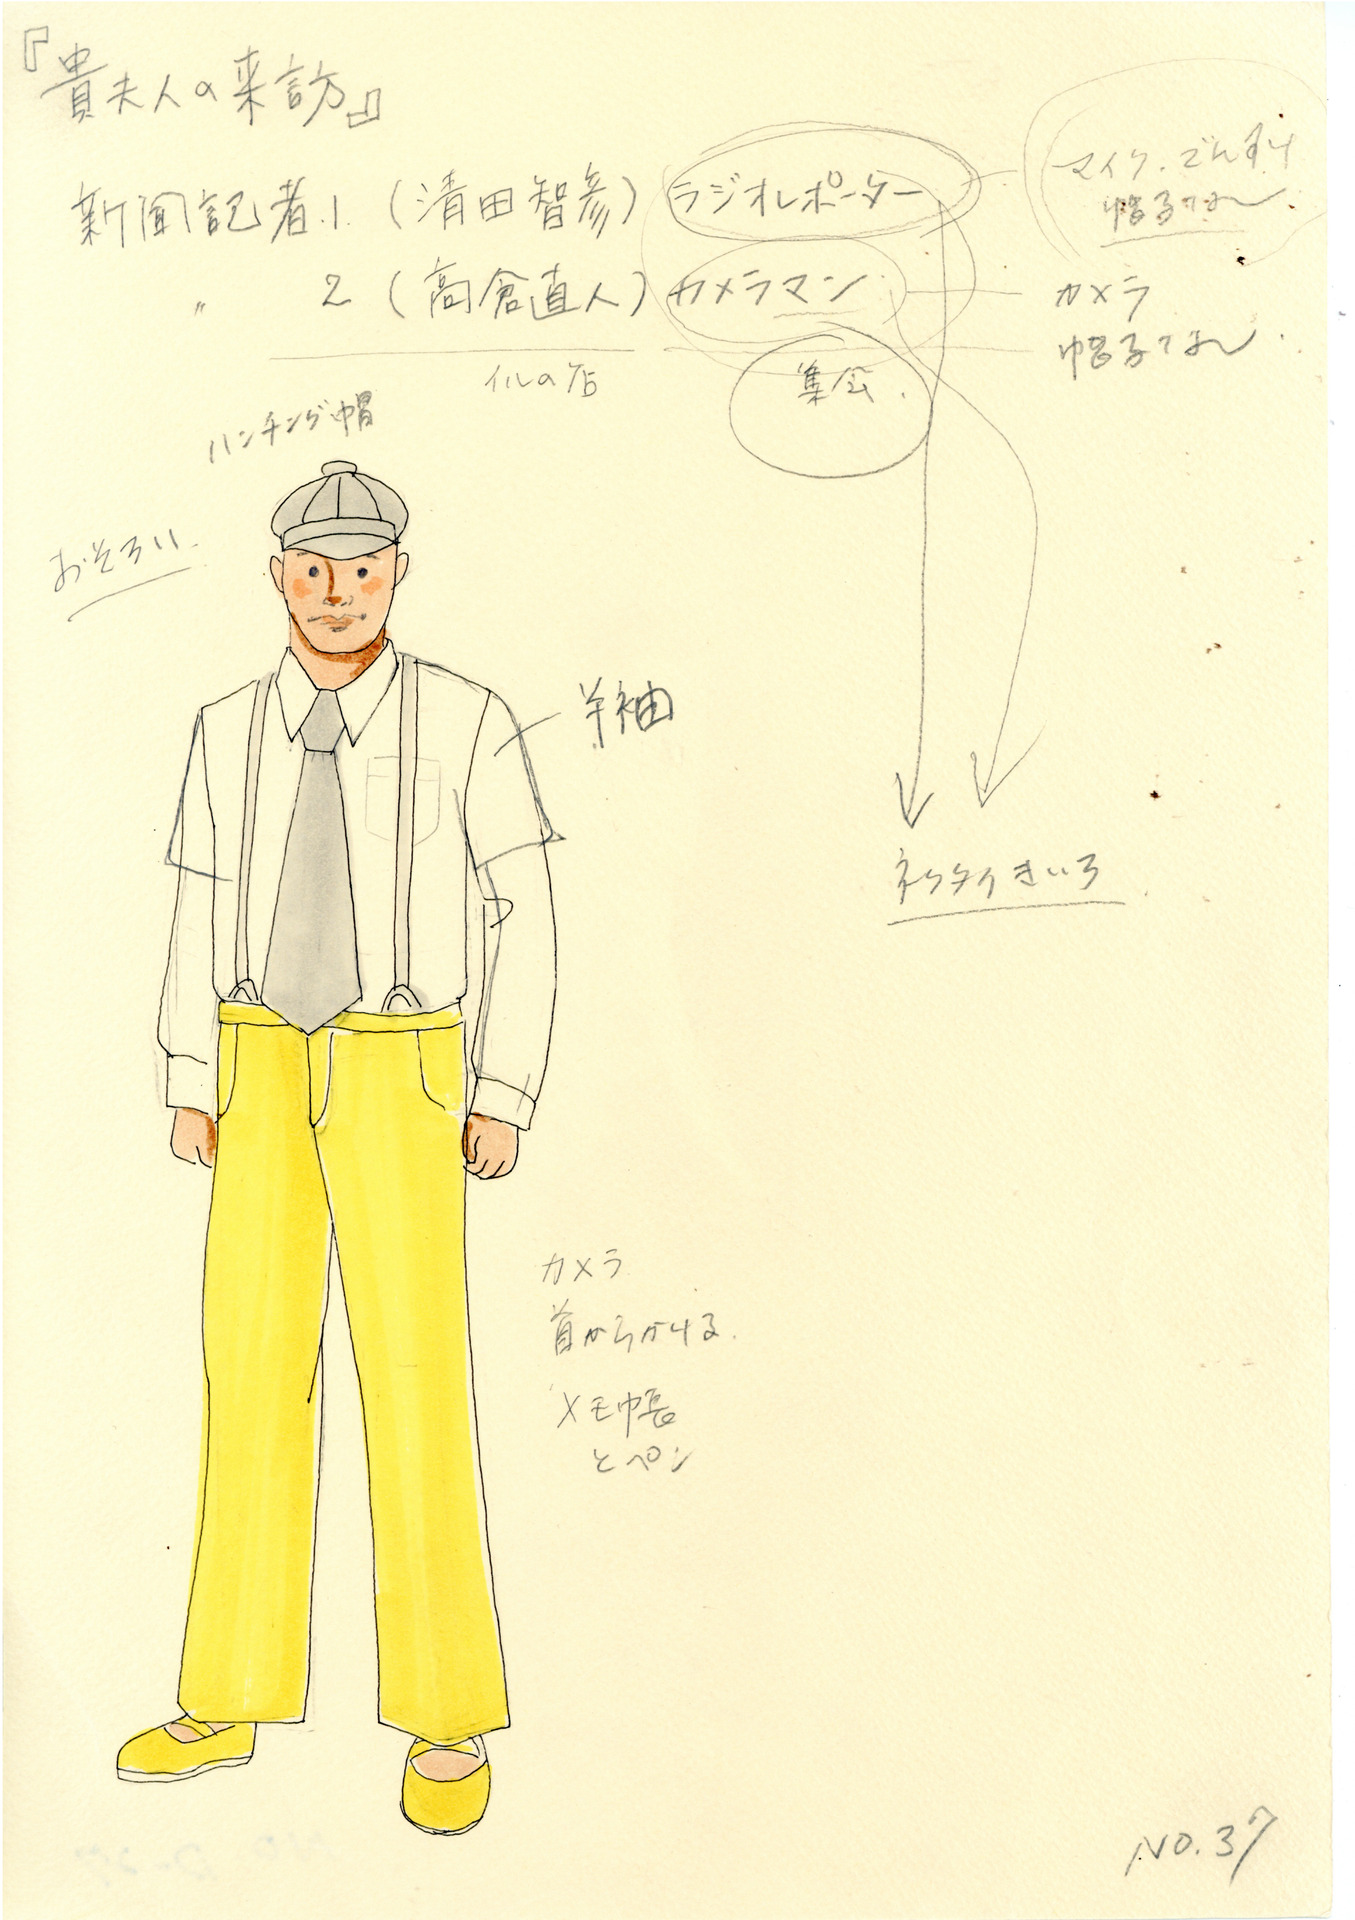 『貴夫人の来訪』
新聞記者.1 (清田智彦) ラジオレポーター
マイク.でんすけ
帽子なし
〃 2 (高倉直人) カメラマン
カメラ
帽子なし.
イルの店
集会.
ハンチング帽
おそろい.
半袖
ネクタイきいろ
カメラ
首からかける.
メモ帳
とペン
NO.37